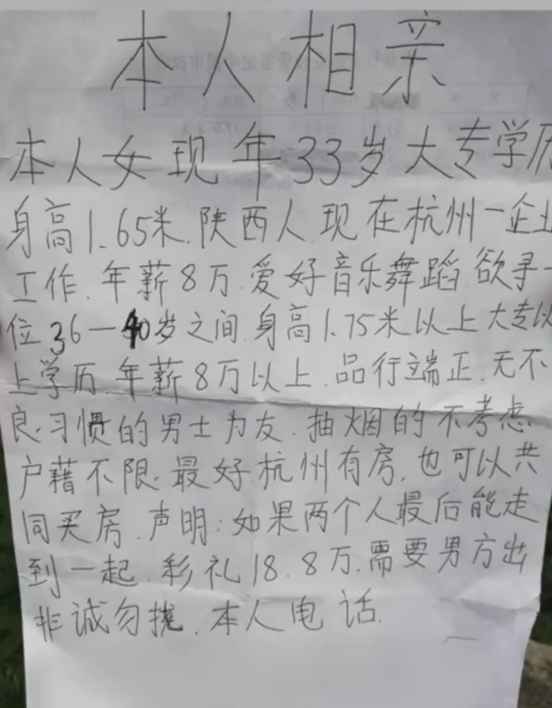 本人相亲
本人女现年33岁大专学历
身高1.65米.陕西人.现在杭州一企业
工作.年薪8万.爱好音乐舞蹈.欲寻一
位36—40岁之间.身高1.75米以上大专以
上学历.年薪8万以上.品行端正.无不
良.习惯的男士为友.抽烟的不考虑.
户藉不限.最好杭州有房.也可以共
同买房.声明:如果两个人最后能走
到一起.彩礼18.8万.需要男方出
非诚勿扰.本人电话.